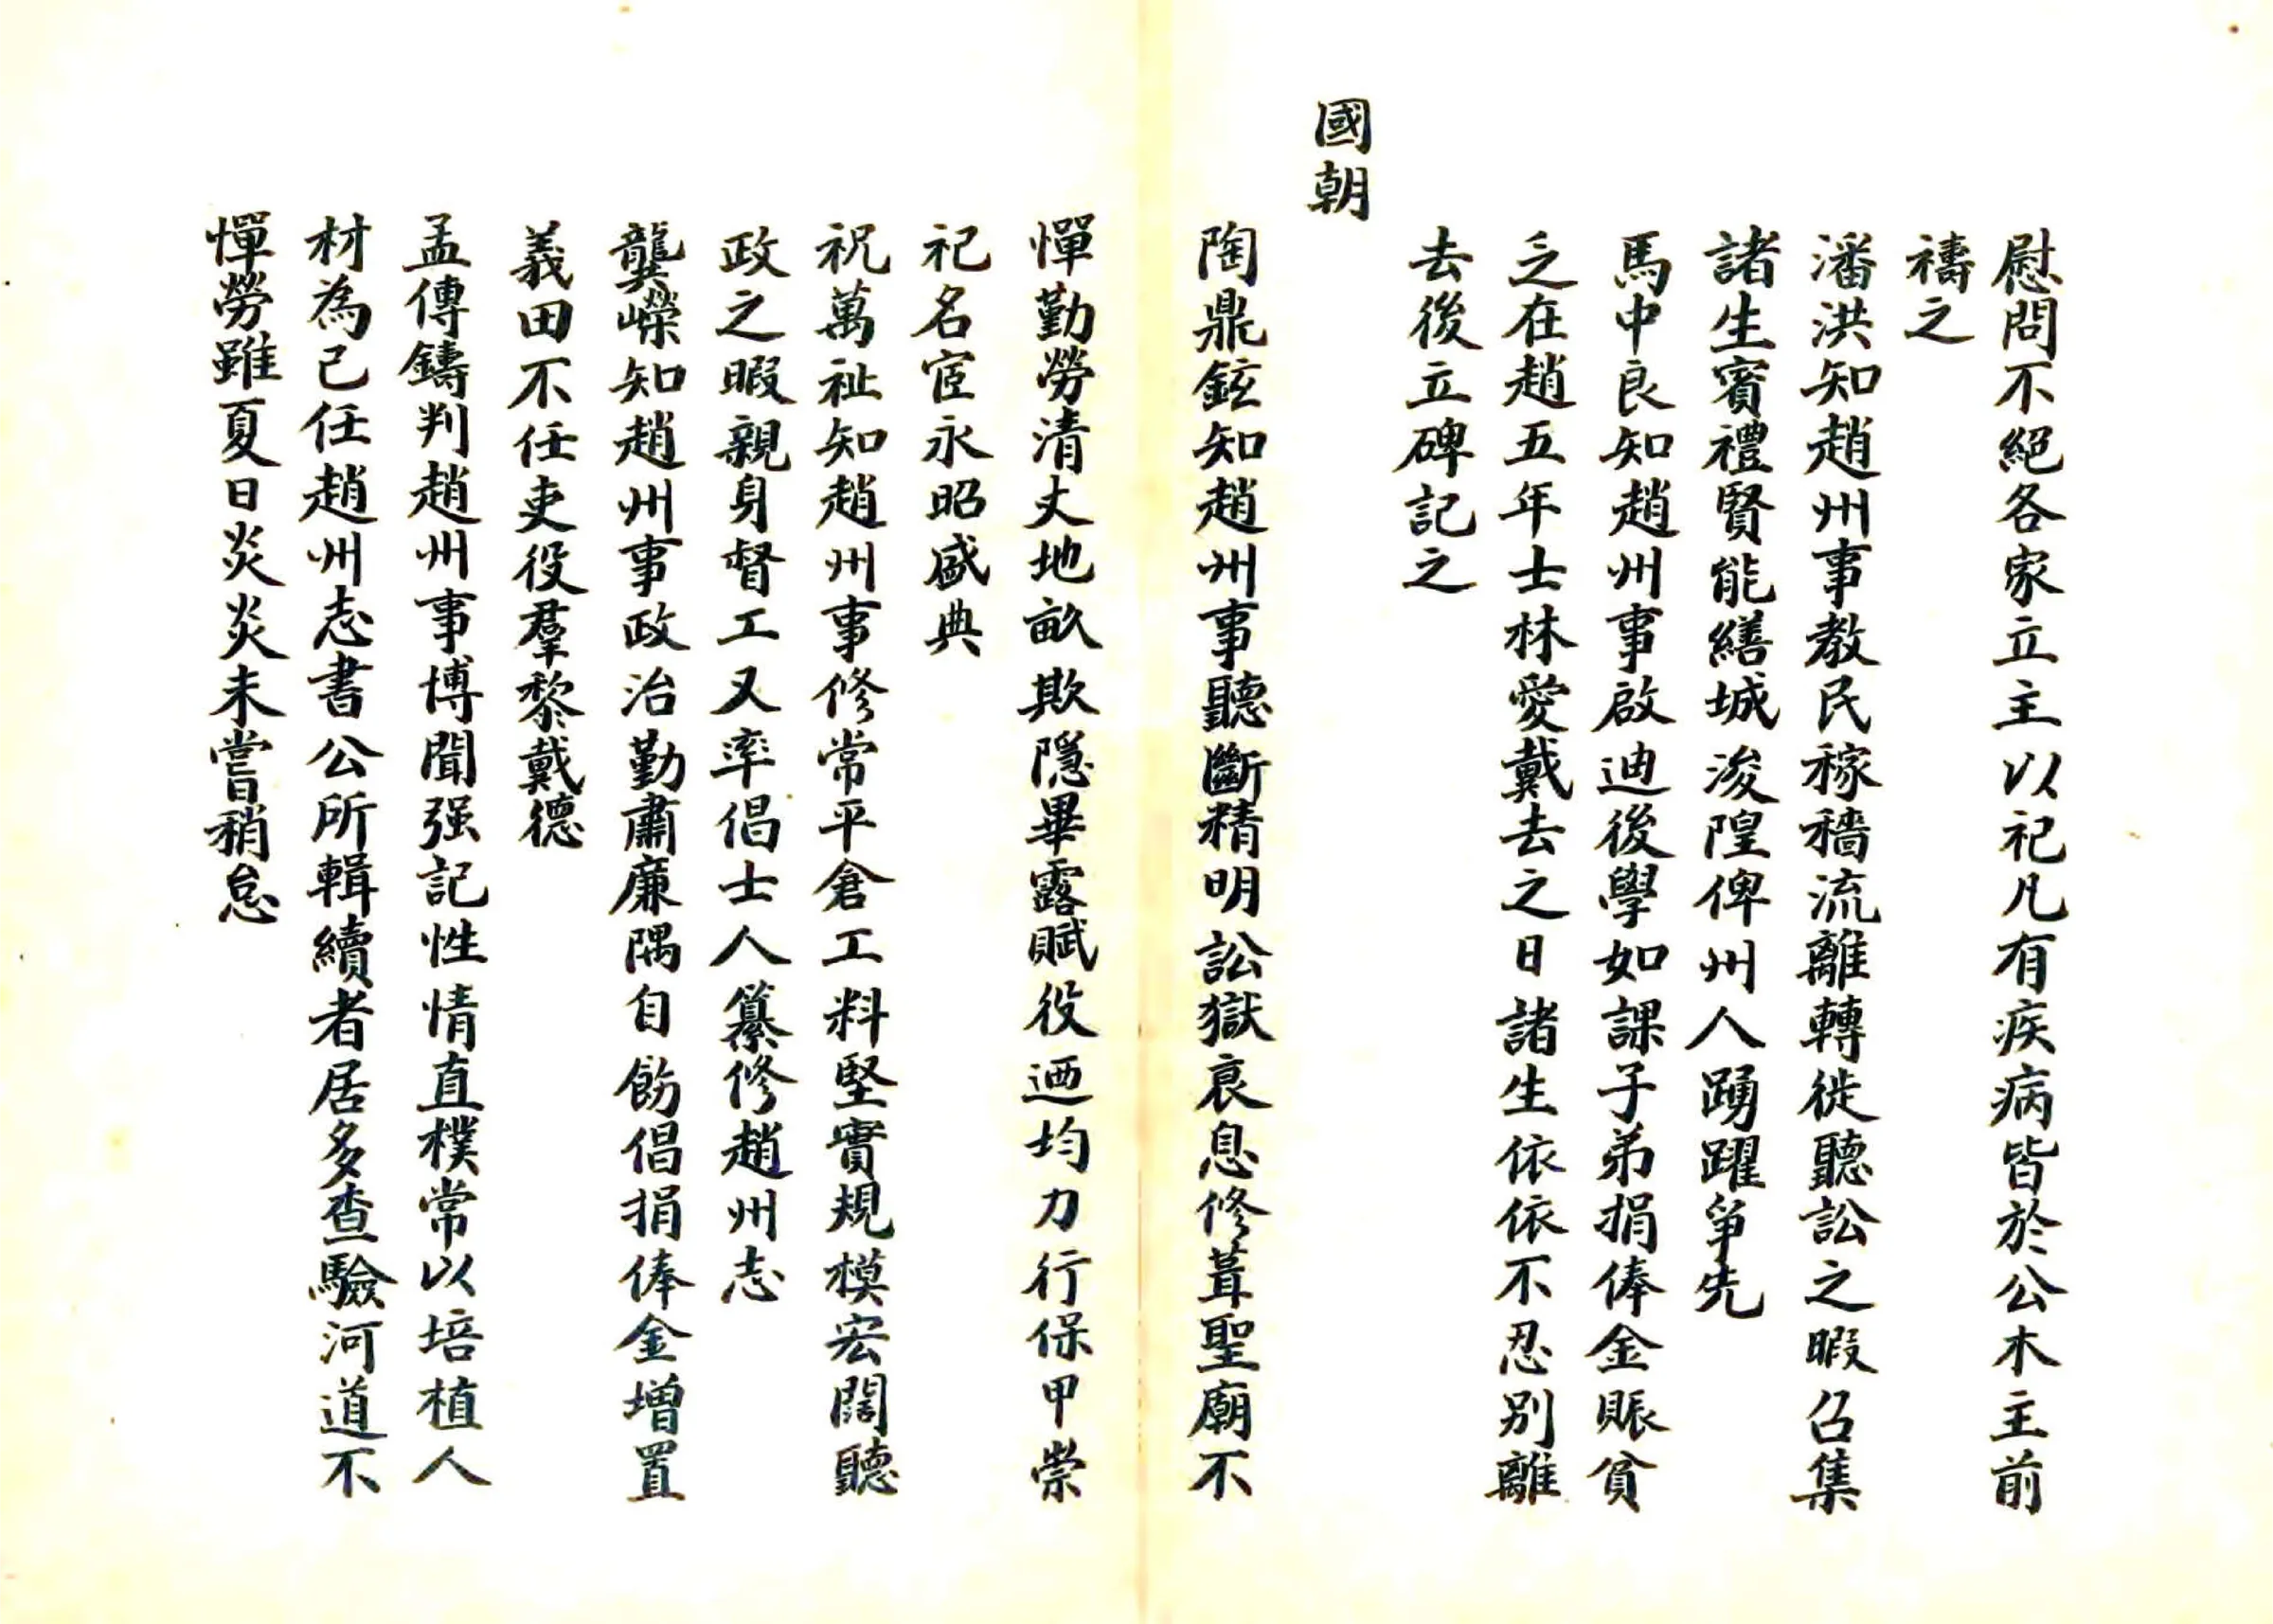 慰問不絕各家立主以祀凡有疾病皆於公木主前
禱之
潘洪知趙州事教民稼穡流離轉徙聽訟之暇召集
諸生賓禮賢能繕城浚隍俾州人踴躍爭先
馬中良知趙州事啟迪後學如課子弟捐俸金賬貧
乏在趙五年士林愛戴去之日諸生依依不忍別離
去後立碑記之
國朝
陶鼎鉉知趙州事聽斷精明訟獄衰息修葺聖廟不
憚勤勞清丈地畝欺隱畢露賦役迺均力行保甲崇
祀名宦永昭盛典
祝萬祉知趙州事修常平倉工料堅實規模宏闊聽
政之暇親身督工又率倡士人纂修趙州志
龔嶸知趙州事政治勤肅廉隅自飭倡捐俸金增置
義田不任吏役羣黎戴德
孟傳鑄判趙州事博聞强記性情直樸常以培植人
材為己任趙州志書公所輯續者居多查驗河道不
憚勞雖夏日炎炎未嘗稍怠